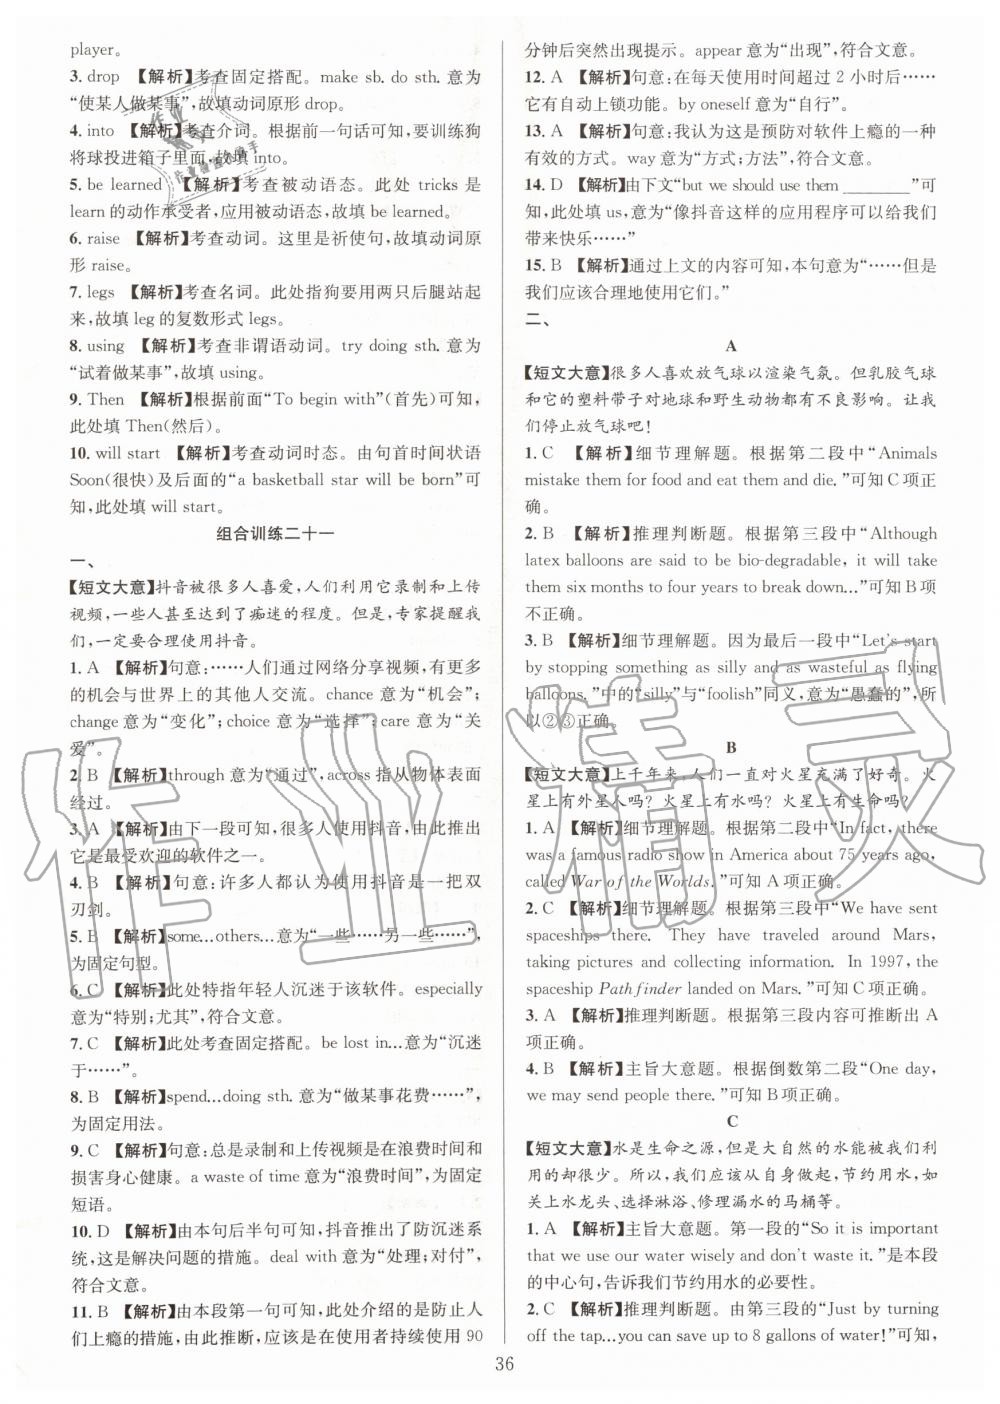 player。
3. drop 【解析】考查固定搭配。make sb. do sth. 意为
“使某人做某事”,故填动词原形 drop。
4. into 【解析】考查介词。根据前一句话可知,要训练狗
将球投进箱子里面,故填 into。
5. be learned 【解析】考查被动语态。此处 tricks 是
learn 的动作承受者,应用被动语态,故填 be learned。
6. raise 【解析】考查动词。这里是祈使句,故填动词原
形 raise。
7. legs 【解析】考查名词。此处指狗要用两只后腿站起
来,故填 leg 的复数形式 legs。
8. using 【解析】考查非谓语动词。try doing sth. 意为
“试着做某事”,故填 using。
9. Then 【解析】根据前面“To begin with”(首先)可知,
此处填 Then(然后)。
10. will start 【解析】考查动词时态。由句首时间状语
Soon(很快)及后面的“a basketball star will be born”可
知,此处填 will start。
组合训练二十一
一、
【短文大意】抖音被很多人喜爱,人们利用它录制和上传
视频,一些人甚至达到了痴迷的程度。但是,专家提醒我
们,一定要合理使用抖音。
1. A 【解析】句意:……人们通过网络分享视频,有更多
的机会与世界上的其他人交流。chance 意为“机会”;
change 意为“变化”;choice 意为“选择”;care 意为“关
爱”。
2. B 【解析】through 意为“通过”,across 指从物体表面
经过。
3. A 【解析】由下一段可知,很多人使用抖音,由此推出
它是最受欢迎的软件之一。
4. B 【解析】句意:许多人都认为抖音是一把双
刃剑。
5. B 【解析】some...others...意为“一些……另一些……”,
为固定句型。
6. C 【解析】此处特指年轻人沉迷于该软件。especially
意为“特别;尤其”,符合文意。
7. C 【解析】此处考查固定搭配。be lost in...意为“沉迷
于……”。
8. B 【解析】spend...doing sth. 意为“做某事花费……”,
为固定用法。
9. C 【解析】句意:总是录制和上传视频是在浪费时间和
损害身心健康。a waste of time 意为“浪费时间”,为固定
短语。
10. D 【解析】由本句后半句可知,抖音推出了防沉迷系
统,这是解决问题的措施。deal with 意为“处理;对付”,
符合文意。
11. B 【解析】由本段第一句可知,此处介绍的是防止人
们上瘾的措施,由此推断,应该是在使用者持续使用 90
分钟后突然出现提示。appear 意为“出现”,符合文意。
12. A 【解析】句意:在每天使用时间超过 2 小时后……
它有自动上锁功能。by oneself 意为“自行”。
13. A 【解析】句意:我认为这是预防对软件上瘾的一种
有效的方式。way 意为“方式;方法”,符合文意。
14. D 【解析】由下文“but we should use them ________”可
知,此处填 us,意为“像抖音这样的应用程序可以给我们
带来快乐……”
15. B 【解析】通过上文的内容可知,本句意为“……但是
我们应该合理地使用它们。”
二、
A
【短文大意】很多人喜欢放气球以渲染气氛。但乳胶气球
和它的塑料带子对地球和野生动物都有不良影响。让我
们停止放气球吧!
1. C 【解析】细节理解题。根据第二段中“Animals
mistake them for food and eat them and die. ”可知 C 项正
确。
2. B 【解析】推理判断题。根据第三段中“Although
latex balloons are said to be bio-degradable, it will take
them six months to four years to break down...”可知 B 项
不正确。
3. B 【解析】细节理解题。因为最后一段中“Let's start
by stopping something as silly and as wasteful as flying
balloons. ”中的“silly”与“foolish”同义,意为“愚蠢的”,所
以②③正确。
B
【短文大意】上千年来,人们一直对火星充满了好奇。火
星上有外星人吗?火星上有水吗?火星上有生命吗?
1. A 【解析】细节理解题。根据第二段中“In fact, there
was a famous radio show in America about 75 years ago,
called War of the Worlds. ”可知 A 项正确。
2. C 【解析】细节理解题。根据第三段中“We have sent
spaceships there. They have traveled around Mars,
taking pictures and collecting information. In 1997, the
spaceship Pathfinder landed on Mars. ”可知 C 项正确。
3. A 【解析】推理判断题。根据第三段内容可推断出 A
项正确。
4. B 【解析】主旨大意题。根据倒数第二段中“One day,
we may send people there. ”可知 B 项正确。
C
【短文大意】水是生命之源,但是大自然的水能被我们利
用的却很少。所以,我们应该从自身做起,节约用水,如
关上水龙头、选择淋浴、修理漏水的马桶等。
1. A 【解析】主旨大意题。第一段的“So it is important
that we use our water wisely and don't waste it. ”是本段
的中心句,告诉我们节约用水的必要性。
2. C 【解析】推理判断题。由第三段的“Just by turning
off the tap...you can save up to 8 gallons of water!”可知,
36
作业精灵